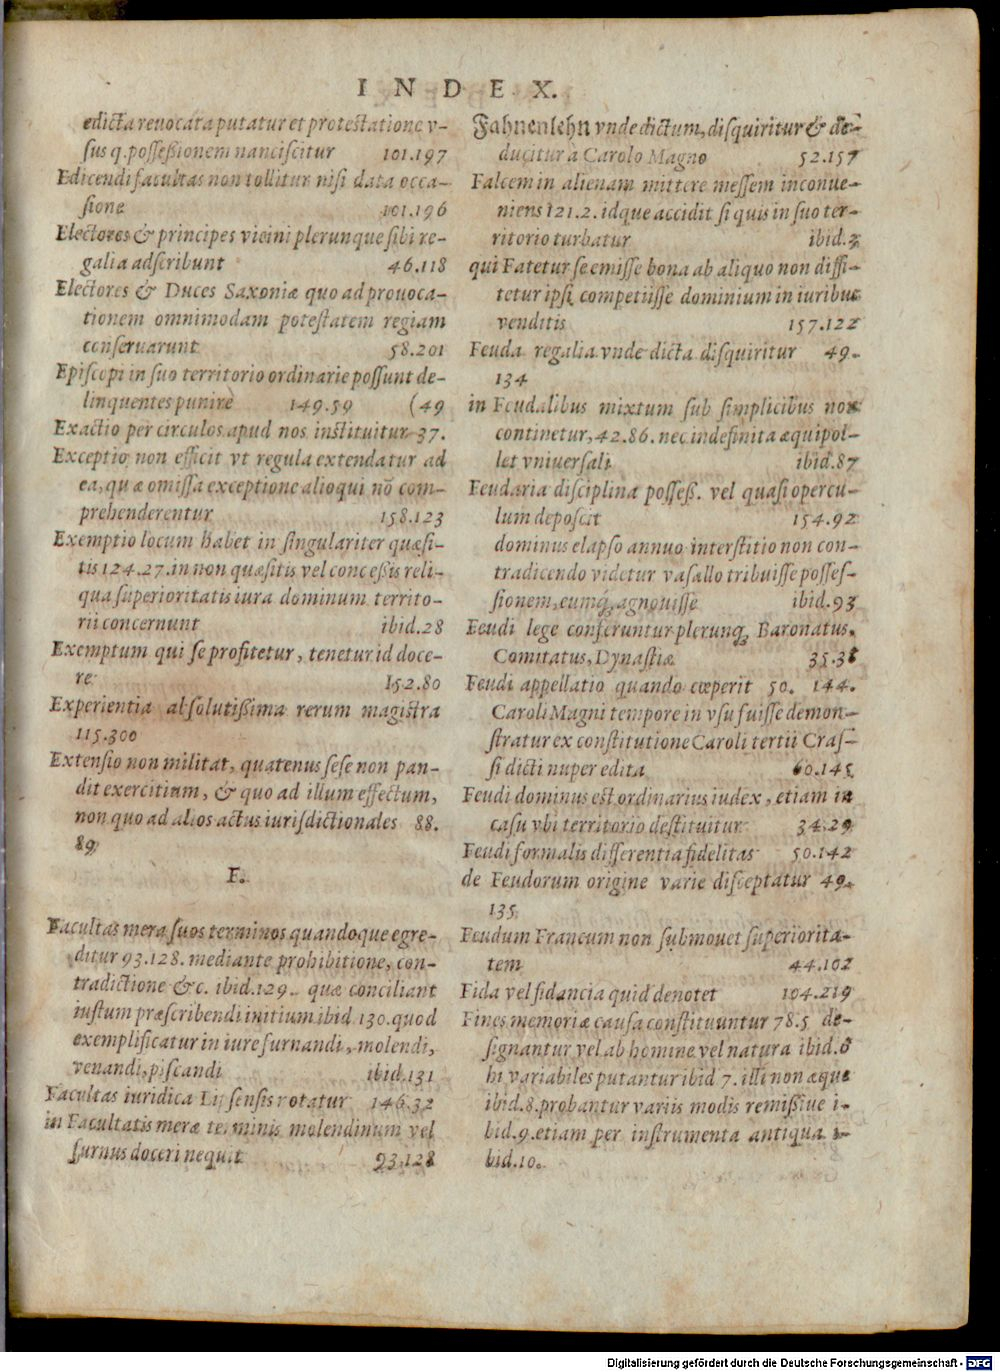 INDEX.
edicta reuocata putatur et protestatione v-
sus q. possessionem nanciscitur 101.197
Edicendi facultas non tollitur nisi data occa-
sione 101.196
Electores & principes vicini plerunque sibi re-
galia adscribunt 46.118
Electores & Duces Saxoniæ quo ad prouoca-
tionem omnimodam potestatem regiam
conseruarunt 58.201
Episcopi in suo territorio ordinarie possunt de-
linquentes punire 149.59 (49
Exactio per circulos apud nos instituitur 37.
Exceptio non efficit vt regula extendatur ad
ea, quæ omissa exceptione alioqui nō com-
prehenderentur 158.123
Exemptio locum habet in singulariter quæsi-
tis 124.27. in non quæsitis vel concessis reli-
qua superioritatis iura dominum territo-
rii concernunt ibid.28
Exemptum qui se profitetur, tenetur id doce-
re 152.80
Experientia absolutissima rerum magistra
115.300
Extensio non militat, quatenus sese non pan-
dit exercitium, & quo ad illum effectum,
non quo ad alios actus iurisdictionales 88.
89
F.
Facultas mera suos terminos quandoque egre-
ditur 93.128. mediante prohibitione, con-
tradictione &c. ibid.129. quæ conciliant
iustum præscribendi initium ibid.130. quod
exemplificatur in iure furnandi, molendi,
venandi, piscandi ibid.131
Facultas iuridica Lipsensis rotatur 146.32
in Facultatis meræ terminis molendinum vel
furnus doceri nequit 93.128
Fahnenlehn vnde dictum, disquiritur & de-
ducitur à Carolo Magno 52.157
Falcem in alienam mittere messem inconue-
niens 121.2. idque accidit si quis in suo ter-
ritorio turbatur ibid.3
qui Fatetur se emisse bona ab aliquo non diffi-
tetur ipsi competiisse dominium in iuribus
venditis 157.122
Feuda regalia vnde dicta disquiritur 49.
134
in Feudalibus mixtum sub simplicibus non
continetur, 42.86. nec indefinita æquipol-
let vniuersali ibid.87
Feudaria disciplina possess. vel quasi opercu-
lum deposcit 154.92
dominus elapso annuo interstitio non con-
tradicendo videtur vasallo tribuisse posses-
sionem, eumq́; agnouisse ibid.93
Feudi lege conferuntur plerunq; Baronatus,
Comitatus, Dynastiæ 35.38
Feudi appellatio quando cœperit 50. 144.
Caroli Magni tempore in vsu fuisse demon-
stratur ex constitutione Caroli tertii Cras-
si dicti nuper edita 60.145
Feudi dominus est ordinarius iudex, etiam in
casu vbi territorio destituitur 34.29
Feudi formalis differentia fidelitas 50.142
de Feudorum origine varie disceptatur 49.
135
Feudum Francum non submouet superiorita-
tem 44.102
Fida vel fidancia quid denotet 104.219
Fines memoriæ causa constituuntur 78.5 de-
signantur vel ab homine vel natura ibid.6
hi variabiles putantur ibid 7. illi non æque
ibid.8. probantur variis modis remissiue i-
bid.9. etiam per instrumenta antiqua i-
bid.10.
Digitalisierung gefördert durch die Deutsche Forschungsgemeinschaft - DFG